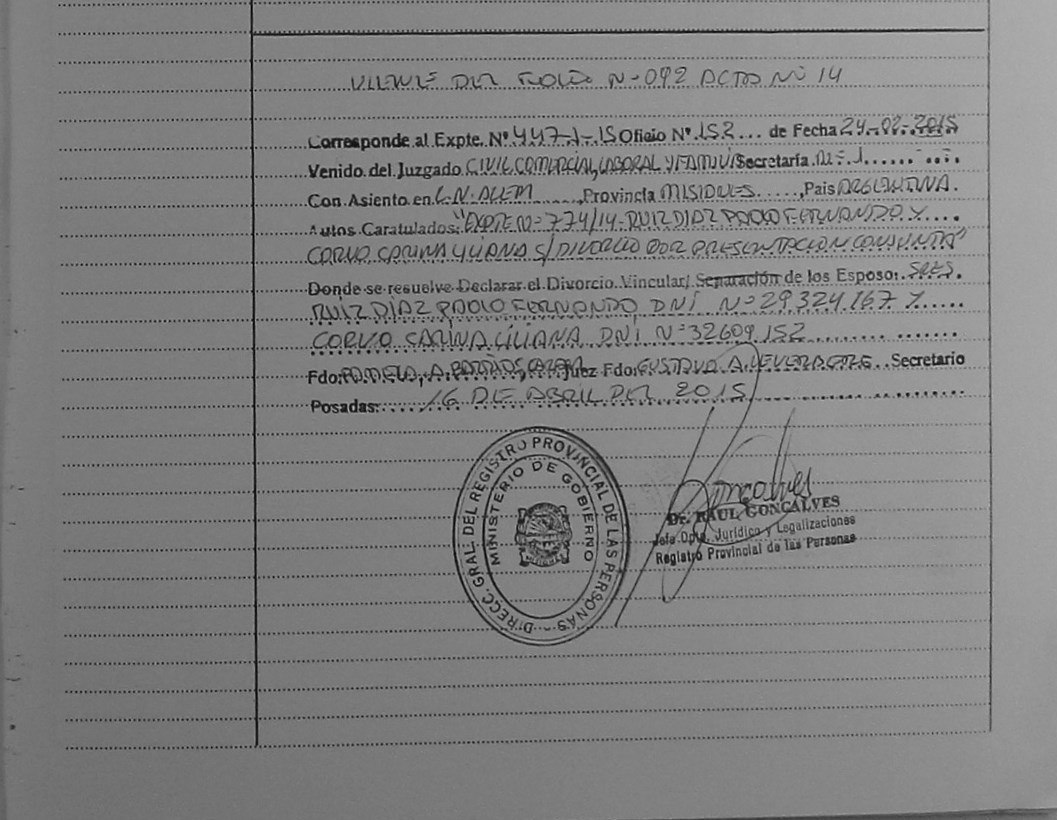 VIENE DEL FOLIO Nº 092 ACTA Nº 14
Corresponde al Expte. Nº 447-1-15 Oficio Nº 152... de Fecha 24-02-2015
Venido del Juzgado CIVIL, COMERCIAL, LABORAL Y FAMILIA Secretaría Nº 1
Con Asiento en L.N. ALEM, Provincia MISIONES, Pais ARGENTINA.
Autos Caratulados: "EXPTE Nº 774/14 - RUIZ DIAZ PAOLO FERNANDO Y
CORVO CARINA LILIANA S/ DIVORCIO POR PRESENTACION CONJUNTA"
Donde se resuelve Declarar el Divorcio Vincular/ Separación de los Esposo: SRES.
RUIZ DÍAZ PAOLO FERNANDO DNI Nº 29.324.167 Y
CORVO CARINA LILIANA DNI Nº 32609.152
Fdo: PAMELA A. BARRIOS Juez Fdo: GUSTAVO A. Secretario
Posadas: 16 DE ABRIL DEL 2015
DIRECC. GRAL. DEL REGISTRO PROVINCIAL DE LAS PERSONAS
MINISTERIO DE GOBIERNO
Gonçalves
Dr. RAUL GONCALVES
Jefe Dpto. Jurídico y Legalizaciones
Registro Provincial de las Personas